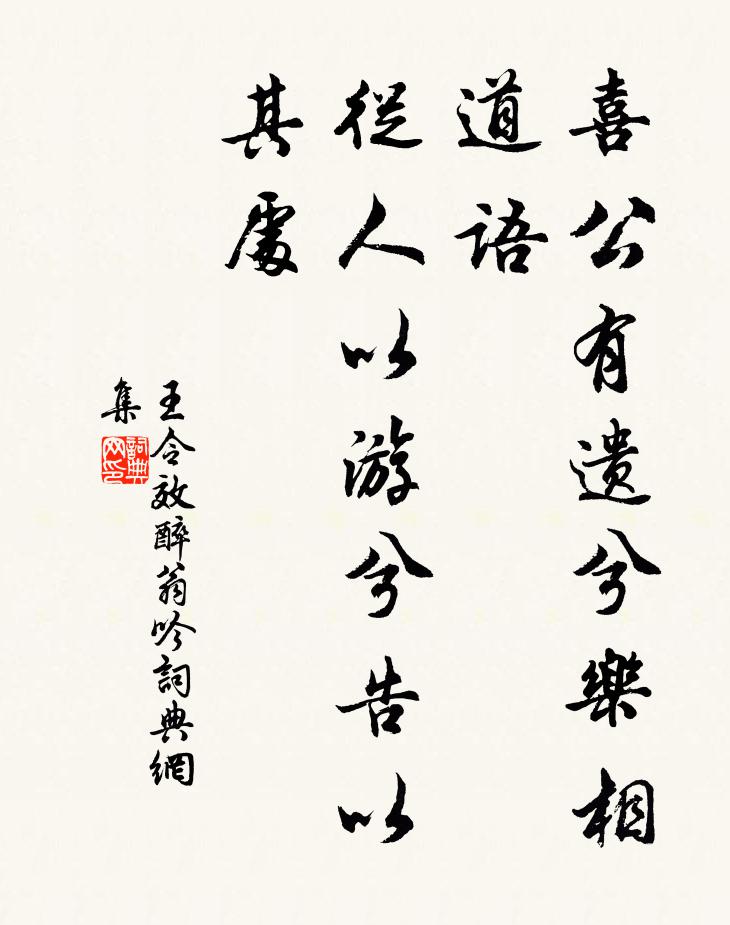 喜公有遗兮樂相
道語
從人以游兮告以
其處
王令效醉翁吟詞典網
集
詞典网印